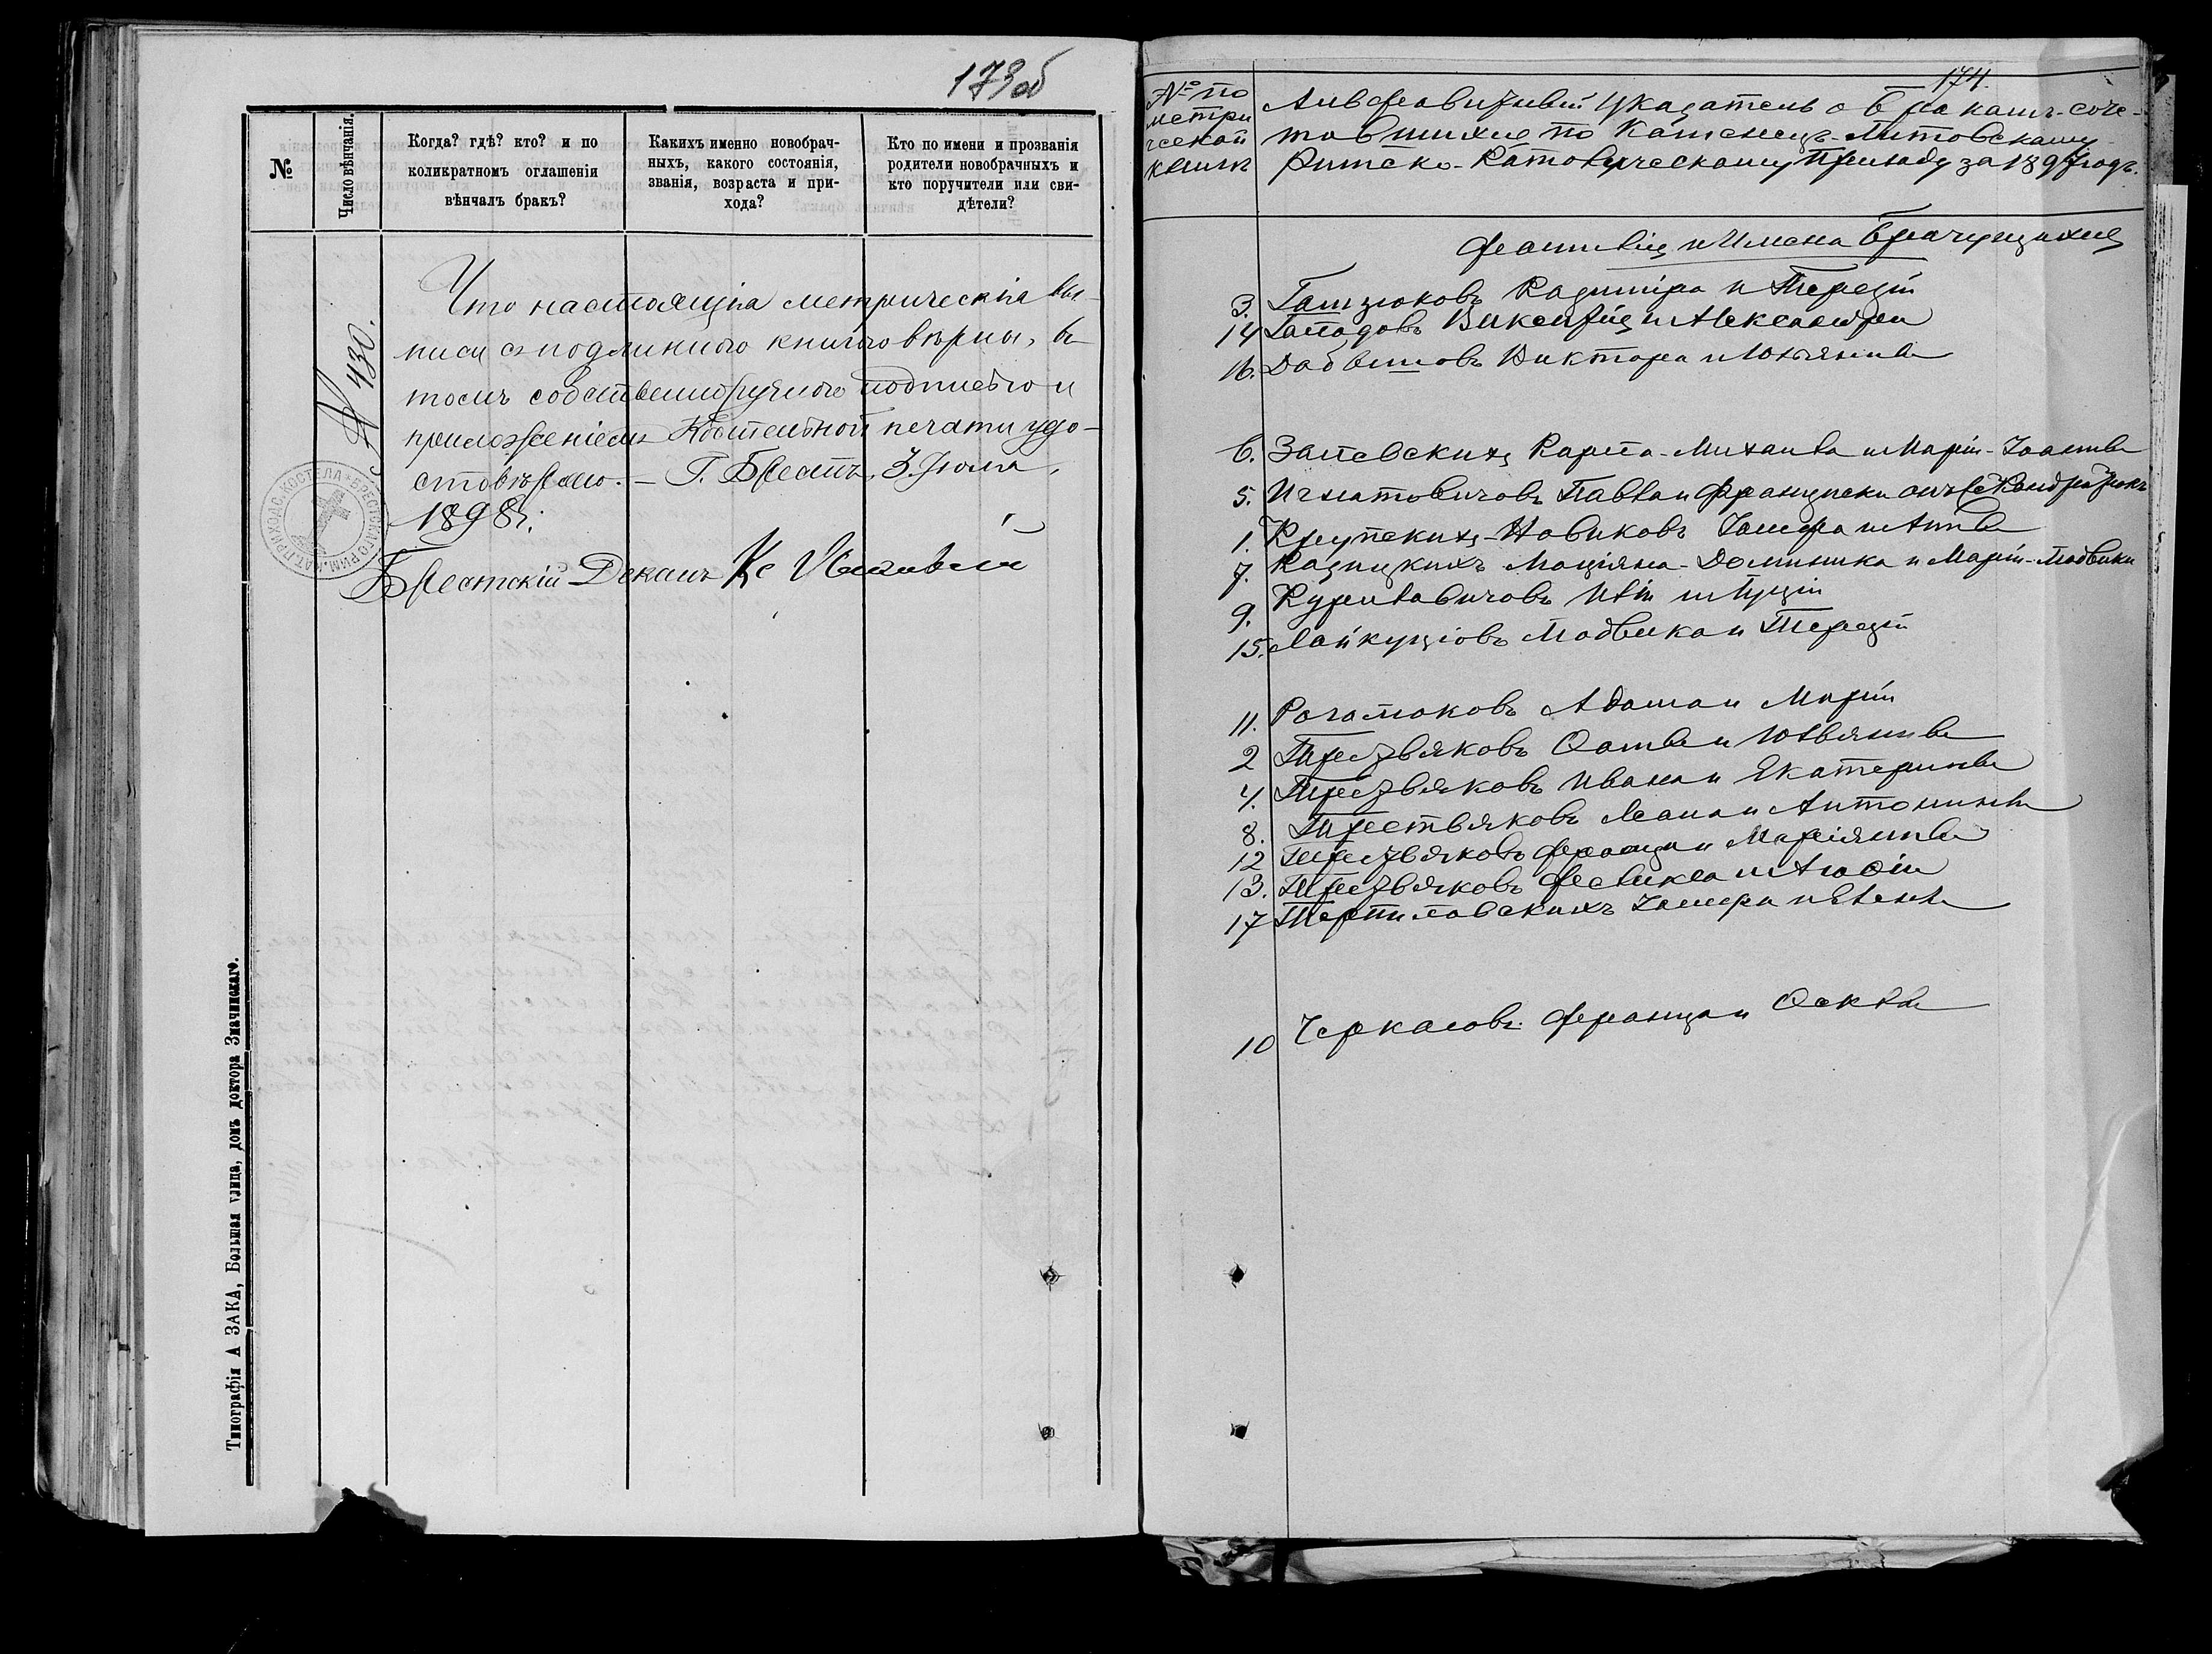 173об
№
Число вѣнчанія.
Когда? гдѣ? кто? и по
коликратномъ оглашеніи
вѣнчалъ бракъ?
Какихъ именно новобрач-
ныхъ, какого состоянія,
званія, возраста и при-
хода?
Кто по имени и прозванія
родители новобрачныхъ и
кто поручители или сви-
дѣтели?
№ 430.
Что настоящія метрическія вы-
писи съ подлинною книгою вѣрны, въ
томъ собственноручною подписью и
приложеніемъ Костельной печати удо-
стовѣряю. – Г. Брестъ, 3
1898 г.
Брестскій Деканъ Кс
Типографія А ЗАКА, Большая улица, домъ доктора Значинскаго.
174.
№ по
метри
ческой
книгѣ
Алфавитный Указатель о бракахъ соче-
тавшихся по Каменецъ-Литовскому
Римско-Католическому Приходу за 1897 годъ.
Фамиліи и Имена Брачущихся
3. Гатзюковъ Казиміра и Терезіи
14 Гападовъ Викентія и Александры
16. Виктора и Юліянны
6. Запевскихъ Карпа-Михаила и Маріи-Іоанны
5. Игнатовичовъ Павла и Франциски
1. Крупскихъ-Новиковъ Іосифа и Анны
7. Казицкихъ Маціяна-Доминика и Маріи-Людвики
9. Куралавичовъ Иліи и Луціи
15. Лайкуціовъ Людвика и Терезіи
11. Рогатюковъ Адама и Маріи
2 Третьяковъ Фомы и Юліянны
4. Третьяковъ Ивана и Екатерины
8. Третьяковъ Адама и Антонины
12 Третьяковъ Франца и Маріянны
13. Третьяковъ Феликса и
17 Терпиловскихъ Іосифа и Елены
10 Черкасовъ Франца и Фёклы